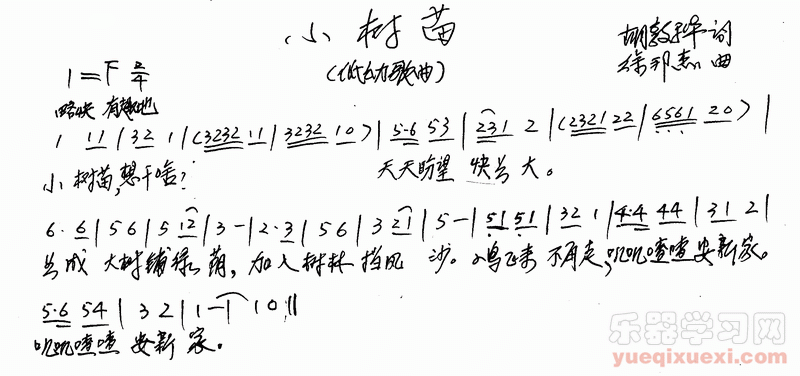 小树苗
(低幼歌曲)
胡敦骅词
徐邦杰曲
1=F 2/4
略快 有趣地
1 11 | 32 1 | (3232 11 | 3232 10) | 5·6 53 | 231 2 | (2321 22 | 6561 20) |
小树苗,想干啥? 天天盼望 快长大。
6· 6 | 56 | 5 12 | 3 - | 2·3 | 56 | 3 21 | 5 - | 51 51 | 32 1 | 4·4 44 | 31 2 |
长成 大树铺绿荫, 加入树林挡风 沙。鸟飞来 不再走,叽叽喳喳安新家。
5·6 54 | 3 2 | 1 - | 1 0 ||
叽叽喳喳 安新 家。
乐器学习网
yueqixuexi.com